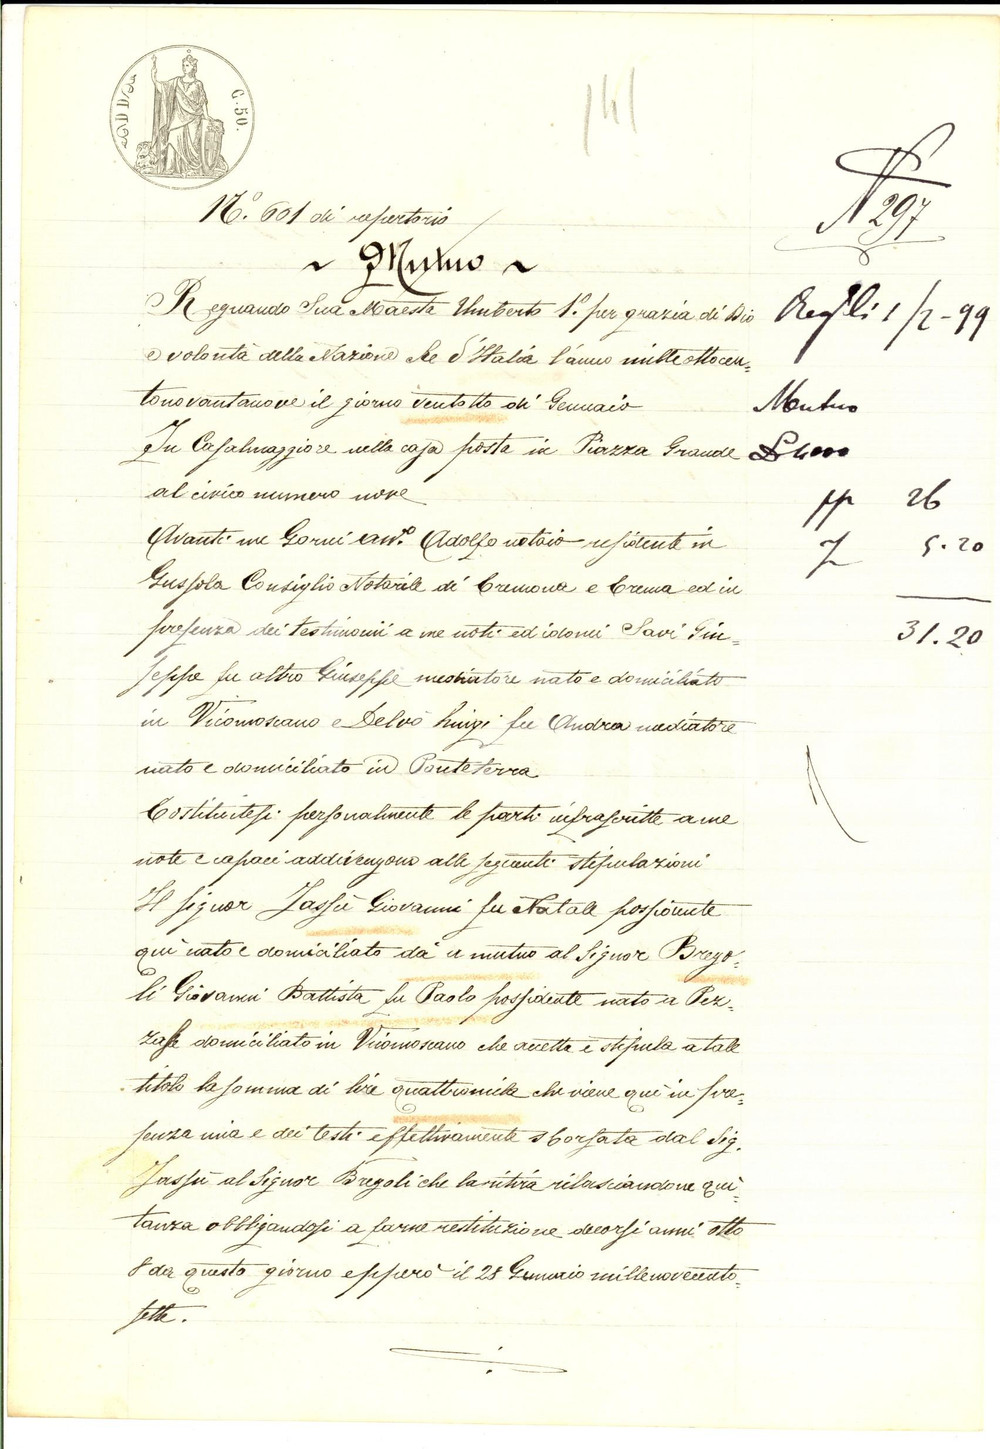 C. 50.
141
N.º 601 di repertorio
N 297
~ Mutuo ~
Regnando Sua Maesta Umberto 1.º per grazia di Dio
e volontà della Nazione Re d'Italia l'anno mille ottocen-
tonovantanove il giorno ventotto di Gennaio
In Casalmaggiore nella casa posta in Piazza Grande
al civico numero nove
Avanti me Gorni Adolfo notaio residente in
Gussola Consiglio Notarile di Cremona e Crema ed in
presenza dei testimoni a me noti ed idonei Savi Giu-
seppe fu altro Giuseppe mediatore nato e domiciliato
in Vicomoscano e Delvò Luigi fu Andrea mediatore
nato e domiciliato in Ponteterra
Costituitesi personalmente le parti infrascritte a me
note e capaci addivengono alle seguenti stipulazioni
Il signor Jassù Giovanni fu Natale possidente
qui nato e domiciliato dà a mutuo al Signor Brego-
li Giovanni Battista fu Paolo possidente nato a Pez-
zase domiciliato in Vicomoscano che accetta e stipula a tale
titolo la somma di lire quattromila che viene qui in pre-
senza mia e dei testi effettivamente sborsata dal Sig.
Jassù al Signor Bregoli che la ritira rilasciandone qui-
tanza obbligandosi a farne restituzione decorsi anni otto
8 da questo giorno epperò il 28 Gennaio millenovecento-
sette.
1/2-99
Mutuo
£ 4000
pp 26
5.20
31.20